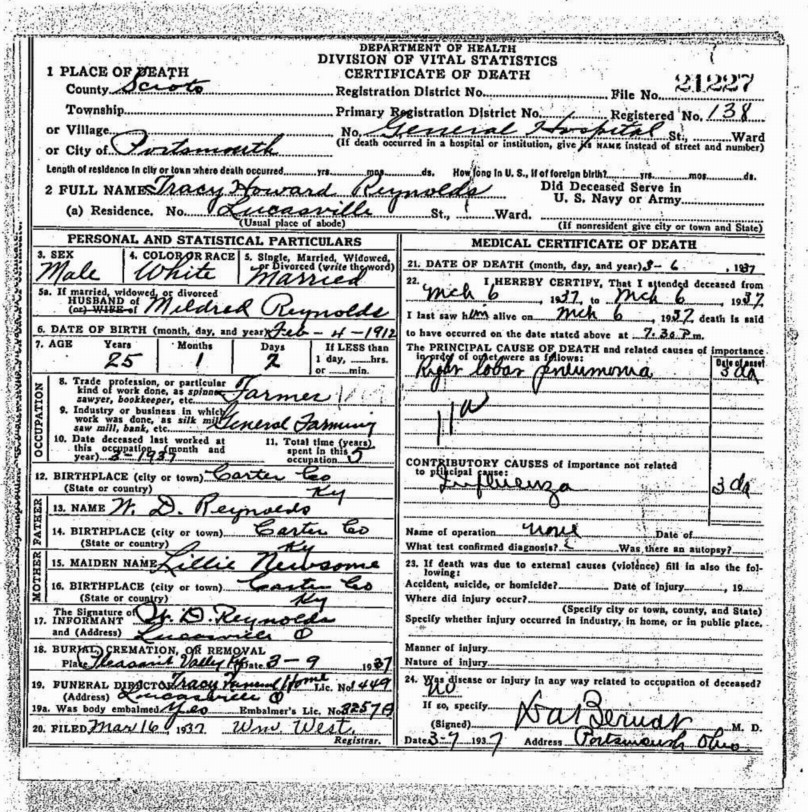 DEPARTMENT OF HEALTH
DIVISION OF VITAL STATISTICS
CERTIFICATE OF DEATH
1 PLACE OF DEATH
County Scioto Registration District No. File No. 21227
Township Primary Registration District No. Registered No. 138
or Village No. General Hospital St., Ward
or City of Portsmouth (If death occurred in a hospital or institution, give its NAME instead of street and number)
Length of residence in city or town where death occurred yrs. mos. ds. How long in U. S., if of foreign birth? yrs. mos. ds.
2 FULL NAME Tracy Howard Reynolds Did Deceased Serve in U. S. Navy or Army
(a) Residence. No. Lucasville St., Ward.
(Usual place of abode) (If nonresident give city or town and State)
PERSONAL AND STATISTICAL PARTICULARS
3. SEX 4. COLOR OR RACE 5. Single, Married, Widowed, or Divorced (write the word)
Male White Married
5a. If married, widowed, or divorced
HUSBAND of Mildred Reynolds
(or) WIFE of
6. DATE OF BIRTH (month, day, and year) Feb - 4 - 1912
7. AGE Years Months Days If LESS than
25 1 2 1 day, hrs.
or min.
OCCUPATION
8. Trade profession, or particular
kind of work done, as spinner, Farmer
sawyer, bookkeeper, etc.
9. Industry or business in which
work was done, as silk mill, General Farming
saw mill, bank, etc.
10. Date deceased last worked at 11. Total time (years)
this occupation (month and spent in this
year) 3-1937 occupation 5
12. BIRTHPLACE (city or town) Carter Co
(State or country) Ky
FATHER
13. NAME W. D. Reynolds
14. BIRTHPLACE (city or town) Carter Co
(State or country) Ky
MOTHER
15. MAIDEN NAME Lillie Newsome
16. BIRTHPLACE (city or town) Carter Co
(State or country) Ky
The Signature of
17. INFORMANT W. D. Reynolds
and (Address) Lucasville O
18. BURIAL, CREMATION, OR REMOVAL
Place Pleasant Valley Date 3-9 1937
19. FUNERAL DIRECTOR Tracy Funeral Home Lic. No. 1449
(Address) Lucasville O
19a. Was body embalmed Yes Embalmer's Lic. No. 3257A
20. FILED Mar 16, 1937 Wm. West.
Registrar.
MEDICAL CERTIFICATE OF DEATH
21. DATE OF DEATH (month, day, and year) 3-6, 1937
22. I HEREBY CERTIFY, That I attended deceased from
Mch 6, 1937, to Mch 6, 1937
I last saw him alive on Mch 6, 1937 death is said
to have occurred on the date stated above at 7.30 P.m.
The PRINCIPAL CAUSE OF DEATH and related causes of importance
in order of onset were as follows: Date of onset
Right lobar pneumonia 3 da
11a
CONTRIBUTORY CAUSES of importance not related
to principal cause:
Influenza 3 da
Name of operation none Date of
What test confirmed diagnosis? Was there an autopsy?
23. If death was due to external causes (violence) fill in also the following:
Accident, suicide, or homicide? Date of injury, 19
Where did injury occur?
(Specify city or town, county, and State)
Specify whether injury occurred in industry, in home, or in public place.
Manner of injury
Nature of injury
24. Was disease or injury in any way related to occupation of deceased?
no
If so, specify
(Signed) M. D.
Date 3-7 1937 Address Portsmouth Ohio